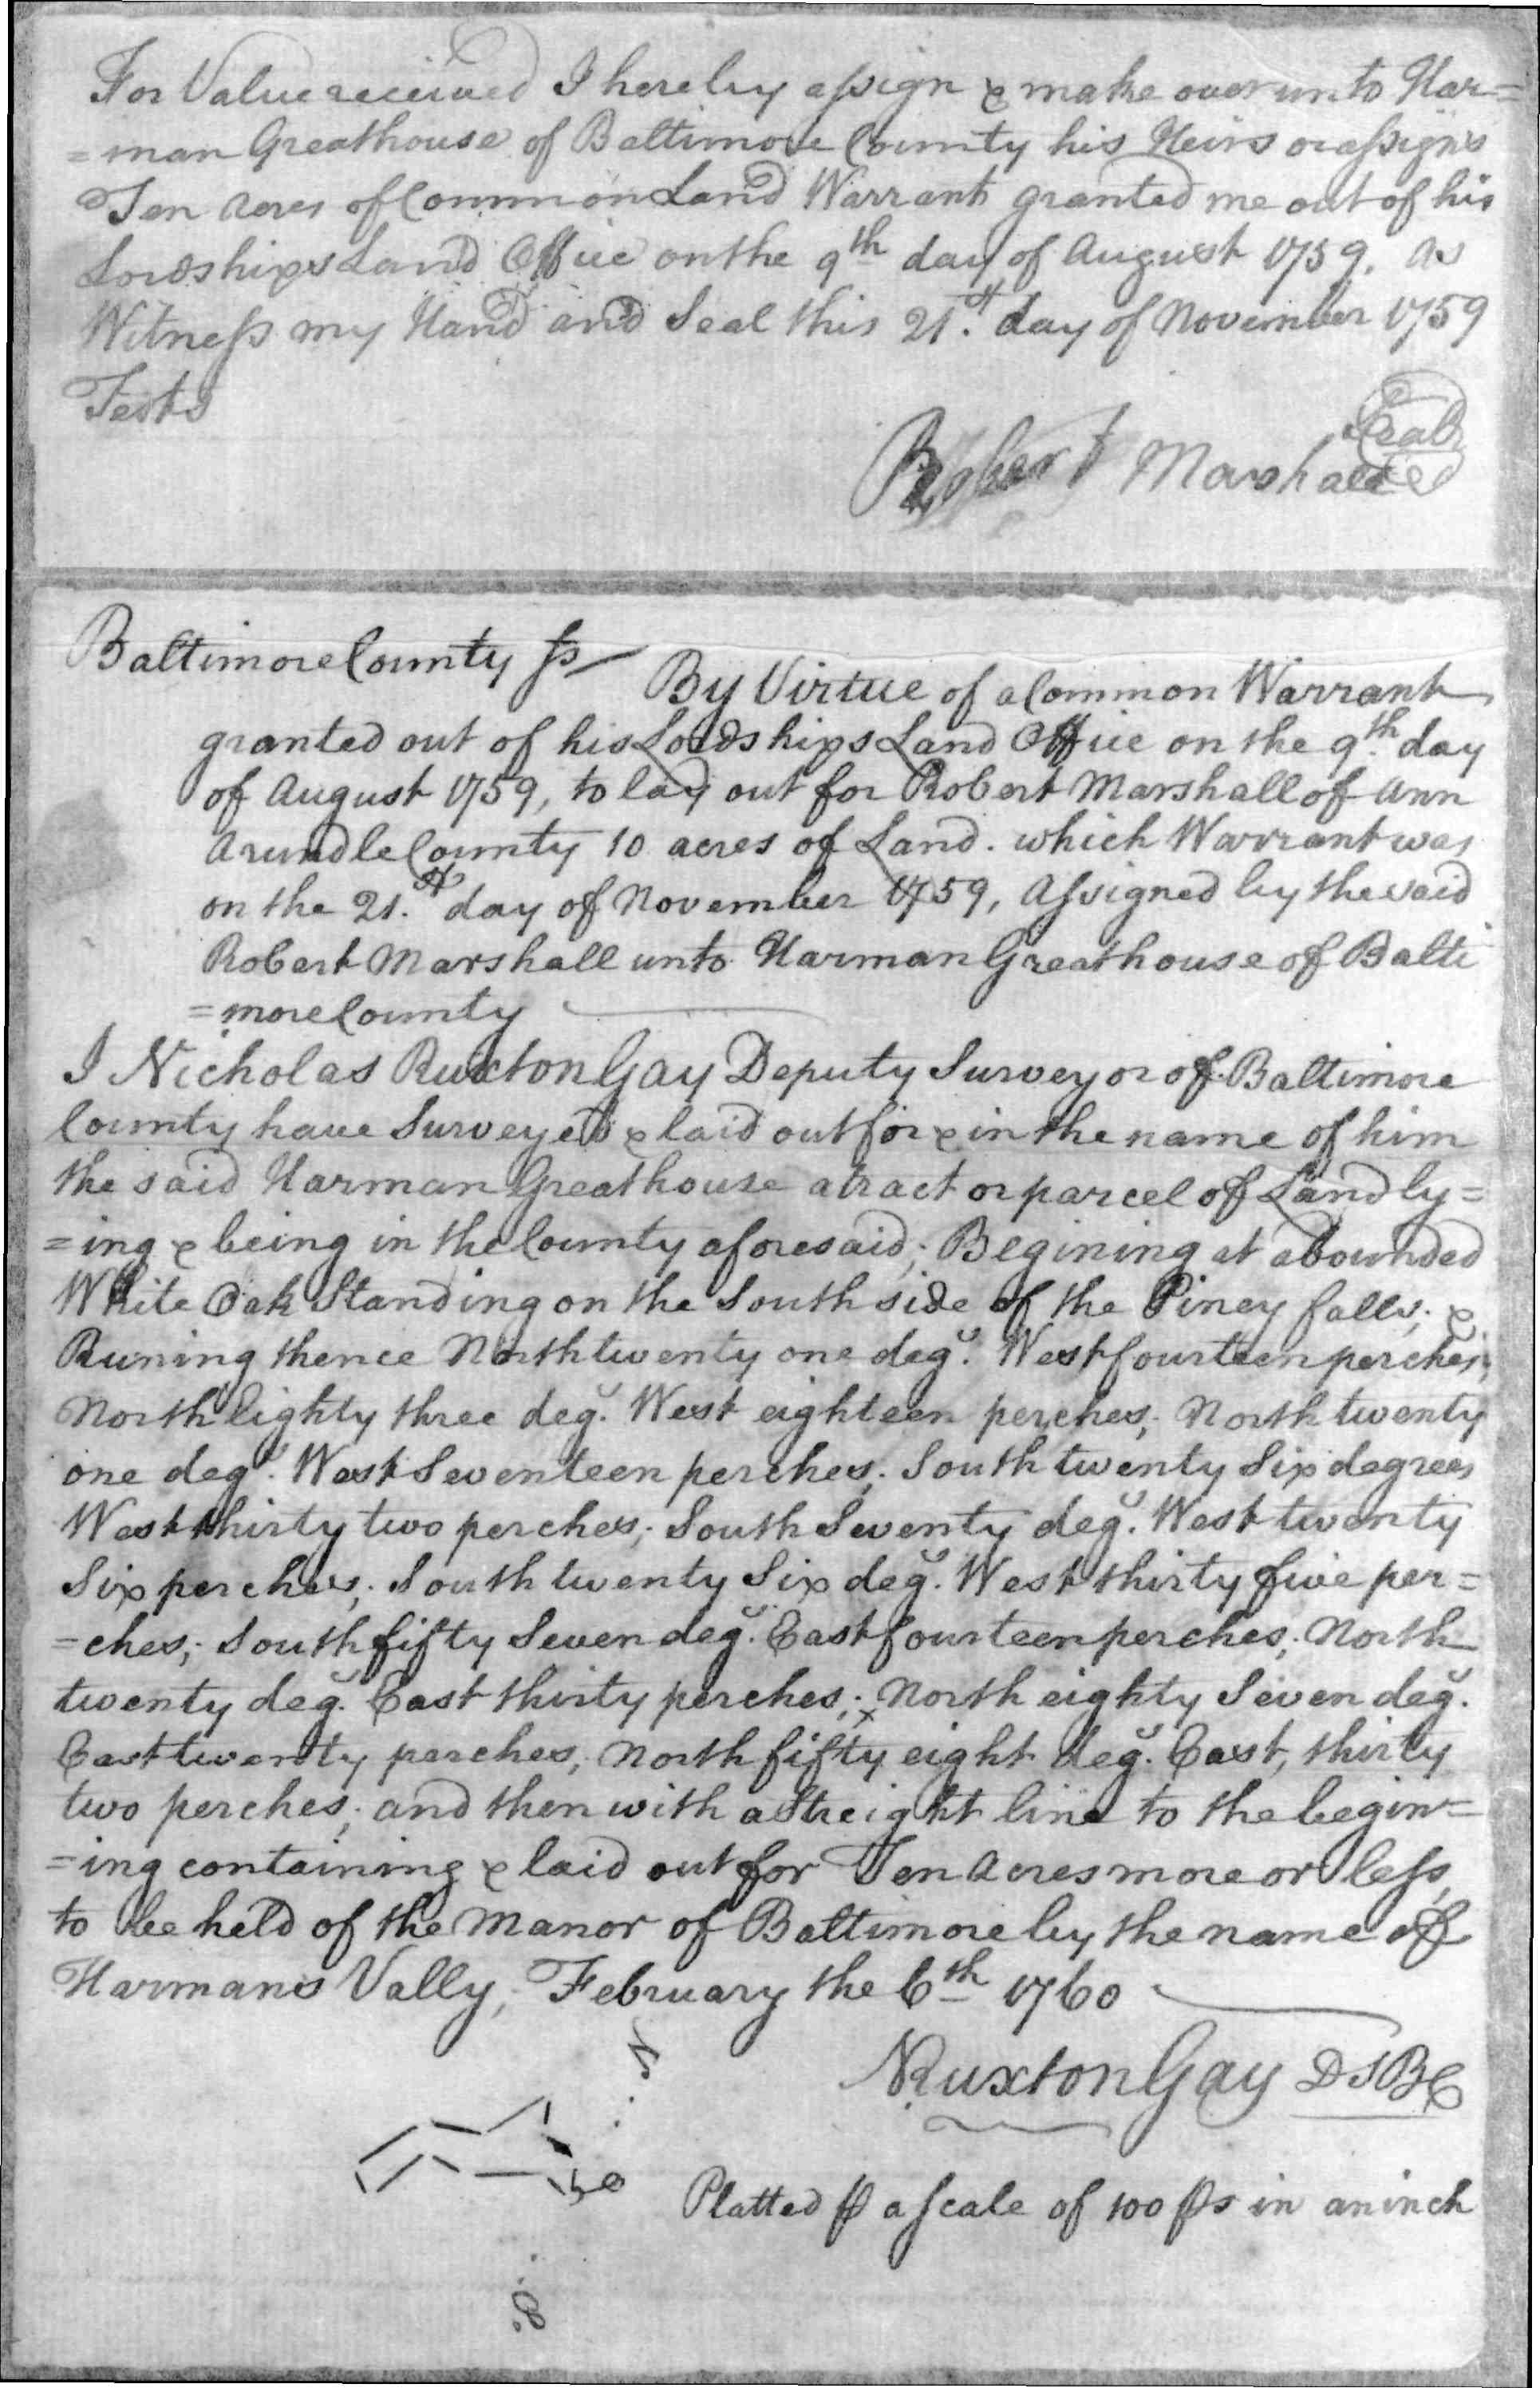 For Value received I hereby assign & make over unto Har=
=man Greathouse of Baltimore County his Heirs or assigns
Ten acres of Common Land Warrant granted me out of his
Lordships Land Office on the 9th day of August 1759. As
Witness my Hand and Seal this 21.st day of November 1759
Test
Seal
Robert Marshall
Baltimore County ss
By Virtue of a Common Warrant
granted out of his Lordships Land Office on the 9th day
of August 1759, to lay out for Robert Marshall of Ann
Arundle County 10 acres of Land. which Warrant was
on the 21.st day of November 1759, Assigned by the said
Robert Marshall unto Harman Greathouse of Balti
=more County
I Nicholas Ruxton Gay Deputy Surveyor of Baltimore
County have Surveyed & laid out for & in the name of him
the said Harman Greathouse a tract or parcel of Land ly=
=ing & being in the County aforesaid; Begining at a bounded
White Oak Standing on the South side of the Piney falls; &
Runing thence North twenty one deg.s West fourteen perches;
North Eighty three deg.s West eighteen perches; North twenty
one deg.s West Seventeen perches; South twenty Six degrees
West thirty two perches; South Seventy deg.s West twenty
Six perches; South twenty Six deg.s West thirty five per=
=ches; South fifty Seven deg.s East fourteen perches; North
twenty deg.s East thirty perches; North eighty Seven deg.s
East twenty perches; North fifty eight deg.s East, thirty
two perches; and then with a Streight line to the begin=
=ing containing & laid out for Ten Acres more or less,
to be held of the Manor of Baltimore by the name of
Harmans Vally; February the 6th 1760
N
NRuxton Gay DSBC
Platted p a Scale of 100 ps in an inch
S.